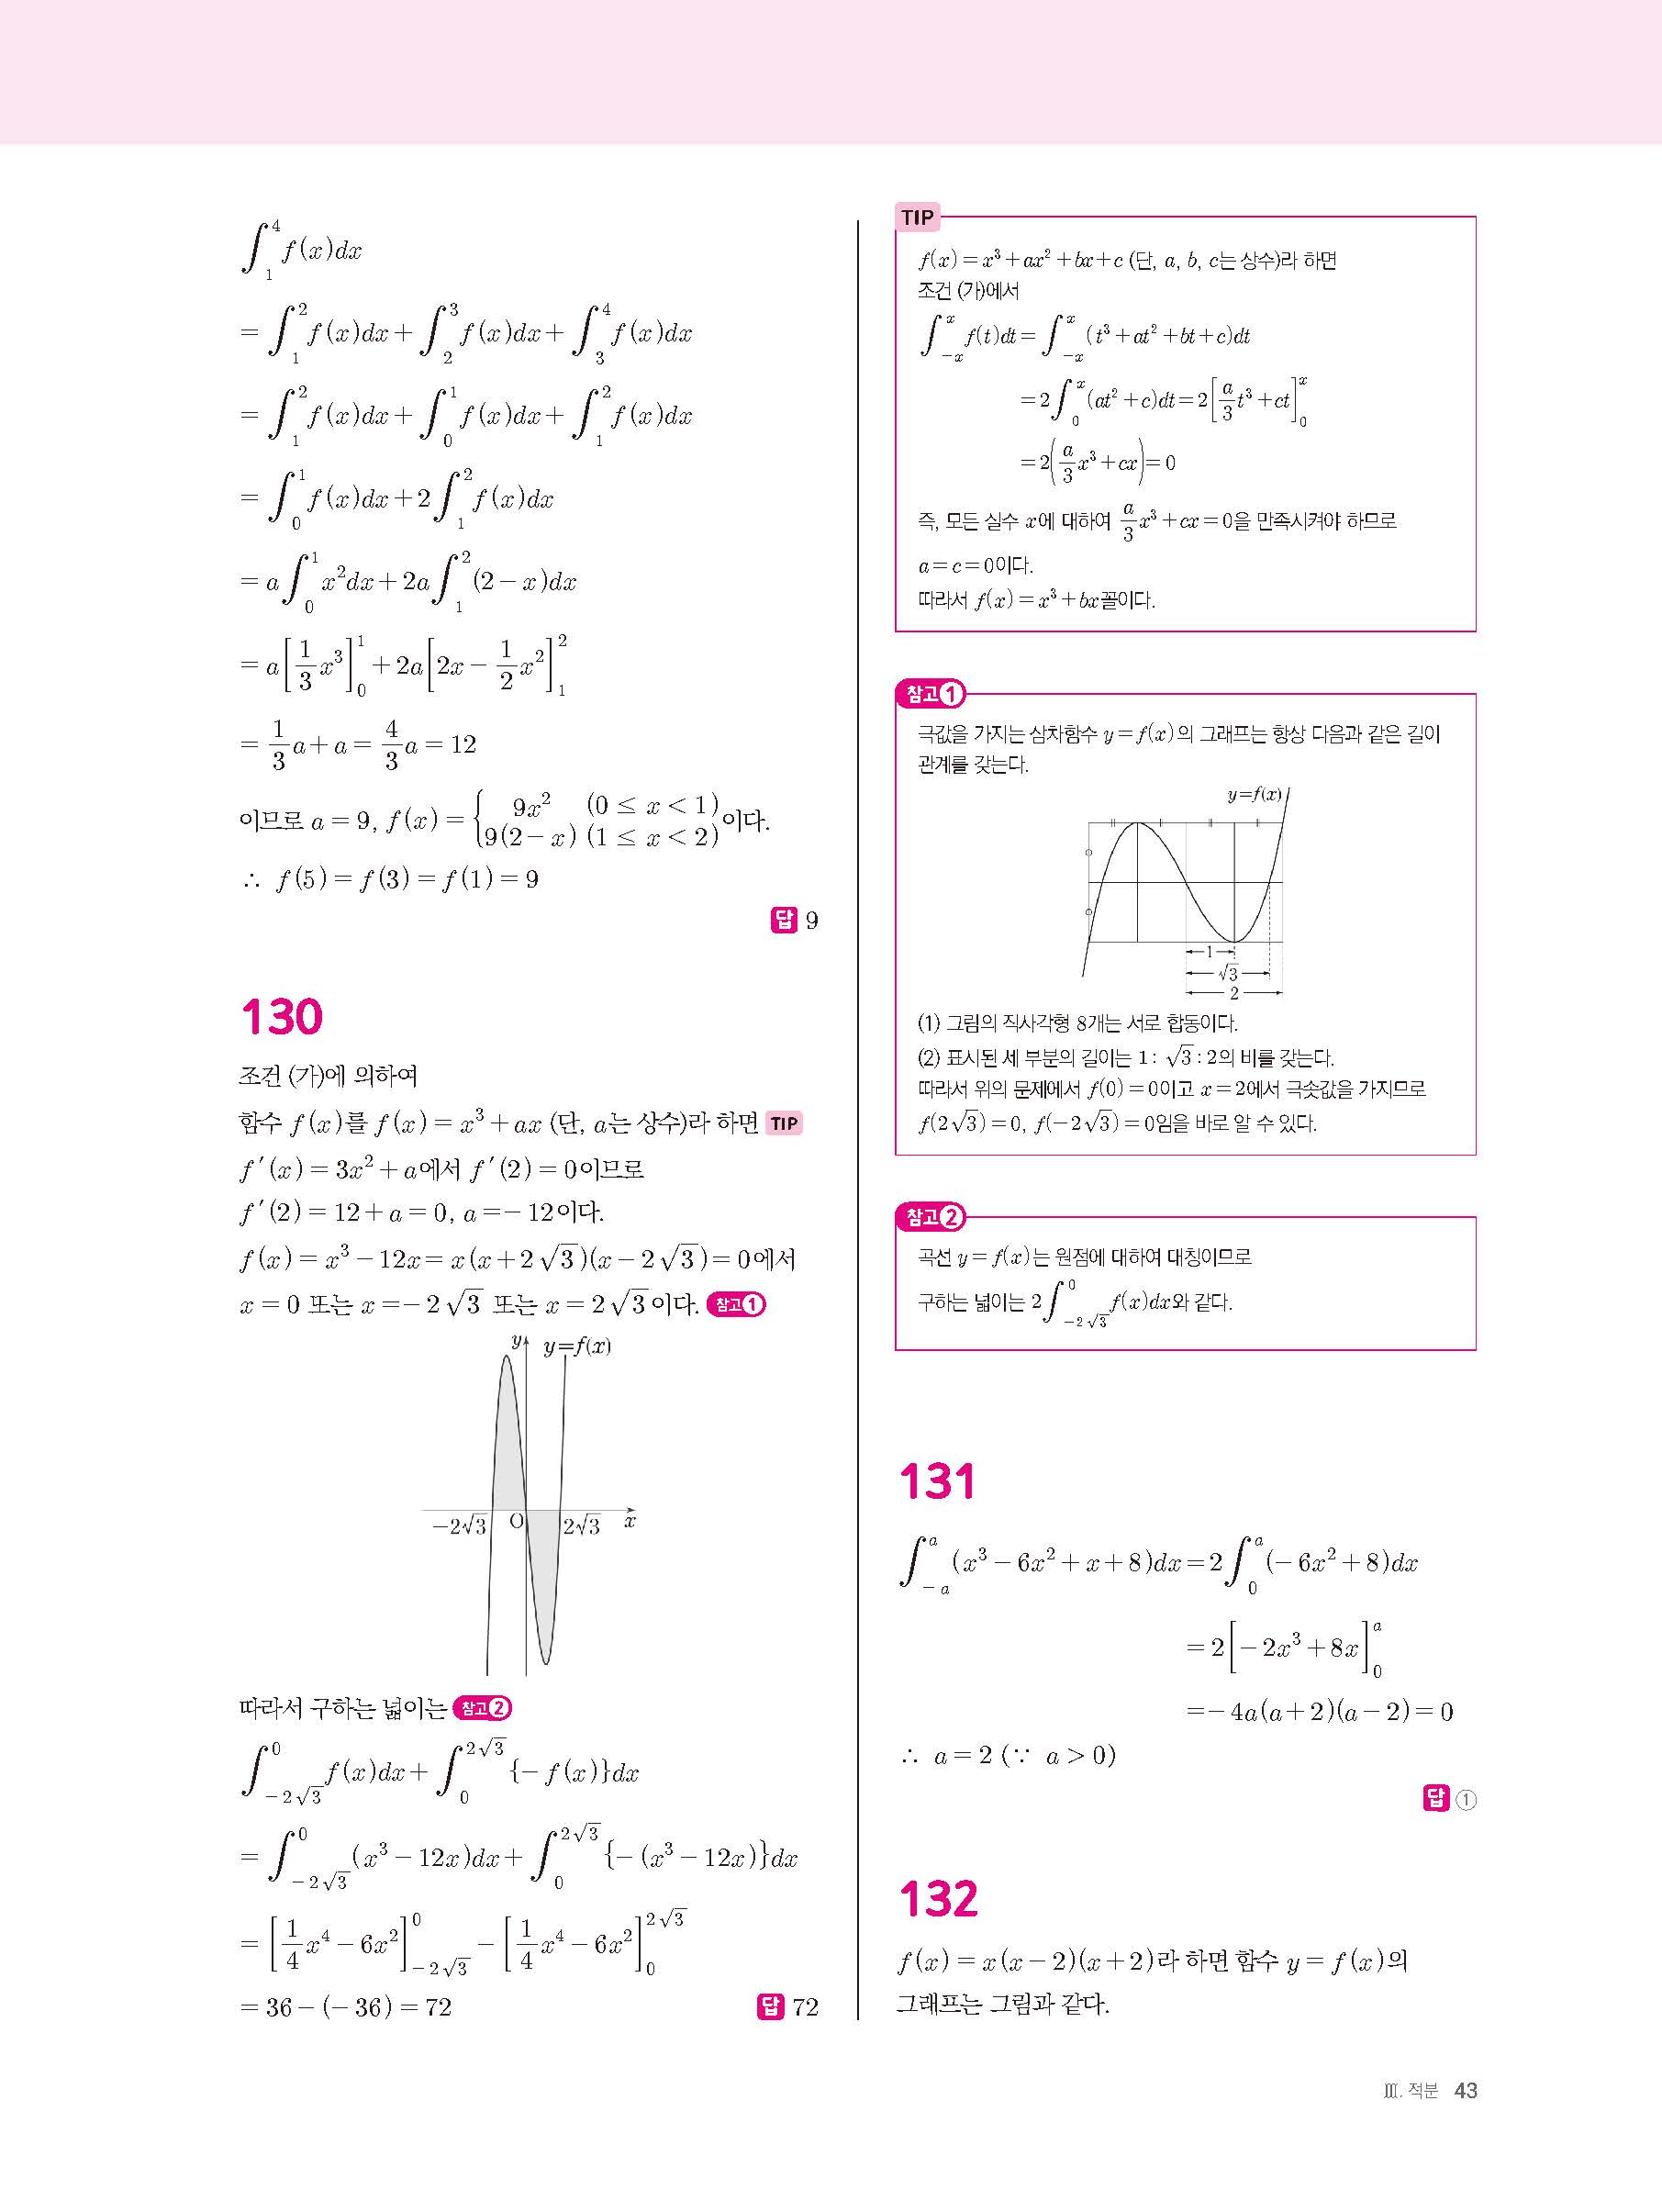 ∫₁⁴ f(x)dx
= ∫₁² f(x)dx + ∫₂³ f(x)dx + ∫₃⁴ f(x)dx
= ∫₁² f(x)dx + ∫₀¹ f(x)dx + ∫₁² f(x)dx
= ∫₀¹ f(x)dx + 2∫₁² f(x)dx
= a∫₀¹ x²dx + 2a∫₁² (2−x)dx
= a[1/3 x³]₀¹ + 2a[2x − 1/2 x²]₁²
= 1/3 a + a = 4/3 a = 12
이므로 a = 9, f(x) = { 9x² (0 ≤ x < 1) 9(2−x) (1 ≤ x < 2) 이다.
∴ f(5) = f(3) = f(1) = 9
답 9
130
조건 (가)에 의하여
함수 f(x)를 f(x) = x³ + ax (단, a는 상수)라 하면 TIP
f′(x) = 3x² + a에서 f′(2) = 0이므로
f′(2) = 12 + a = 0, a = −12이다.
f(x) = x³ − 12x = x(x + 2√3)(x − 2√3) = 0에서
x = 0 또는 x = −2√3 또는 x = 2√3이다. 참고①
y y=f(x)
−2√3 O 2√3 x
따라서 구하는 넓이는 참고②
∫_{−2√3}^{0} f(x)dx + ∫_{0}^{2√3} {−f(x)}dx
= ∫_{−2√3}^{0} (x³ − 12x)dx + ∫_{0}^{2√3} {−(x³ − 12x)}dx
= [1/4 x⁴ − 6x²]_{−2√3}^{0} − [1/4 x⁴ − 6x²]_{0}^{2√3}
= 36 − (−36) = 72 답 72
TIP
f(x) = x³ + ax² + bx + c (단, a, b, c는 상수)라 하면
조건 (가)에서
∫_{−x}^{x} f(t)dt = ∫_{−x}^{x} (t³ + at² + bt + c)dt
= 2∫_{0}^{x} (at² + c)dt = 2[a/3 t³ + ct]_{0}^{x}
= 2(a/3 x³ + cx) = 0
즉, 모든 실수 x에 대하여 a/3 x³ + cx = 0을 만족시켜야 하므로
a = c = 0이다.
따라서 f(x) = x³ + bx꼴이다.
참고①
극값을 가지는 삼차함수 y = f(x)의 그래프는 항상 다음과 같은 길이
관계를 갖는다.
y=f(x)
1
√3
2
(1) 그림의 직사각형 8개는 서로 합동이다.
(2) 표시된 세 부분의 길이는 1 : √3 : 2의 비를 갖는다.
따라서 위의 문제에서 f(0) = 0이고 x = 2에서 극솟값을 가지므로
f(2√3) = 0, f(−2√3) = 0임을 바로 알 수 있다.
참고②
곡선 y = f(x)는 원점에 대하여 대칭이므로
구하는 넓이는 2∫_{−2√3}^{0} f(x)dx와 같다.
131
∫_{−a}^{a} (x³ − 6x² + x + 8)dx = 2∫_{0}^{a} (−6x² + 8)dx
= 2[−2x³ + 8x]_{0}^{a}
= −4a(a + 2)(a − 2) = 0
∴ a = 2 (∵ a > 0)
답 ①
132
f(x) = x(x − 2)(x + 2)라 하면 함수 y = f(x)의
그래프는 그림과 같다.
Ⅲ. 적분 43